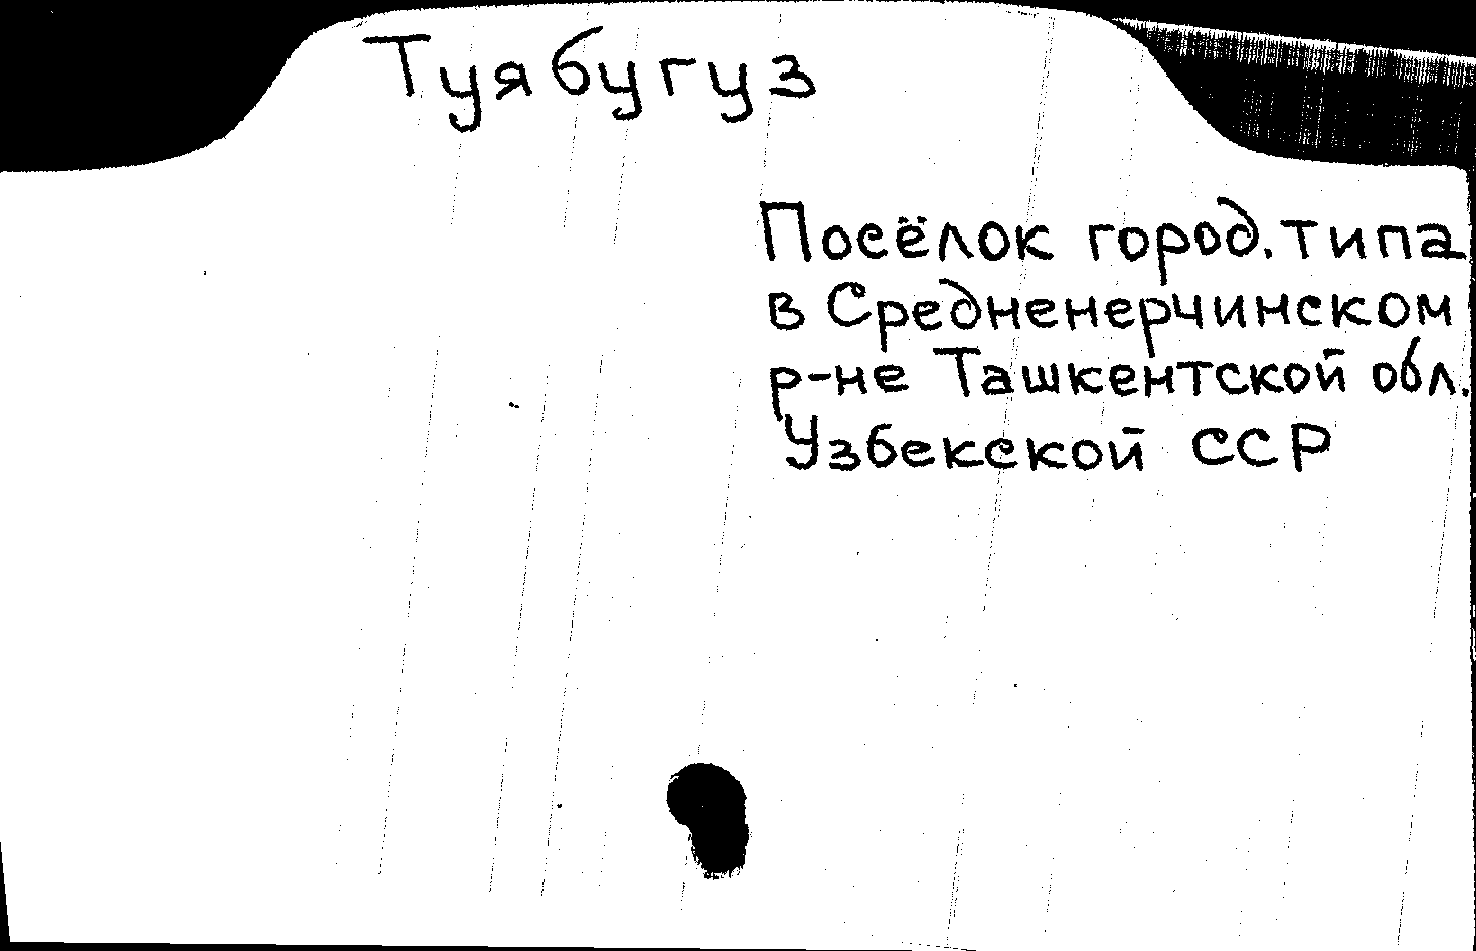 Туябугуз
Посёлок город. типа
в Средненерчинском
р-не Ташкентской обл.
Узбекской ССР